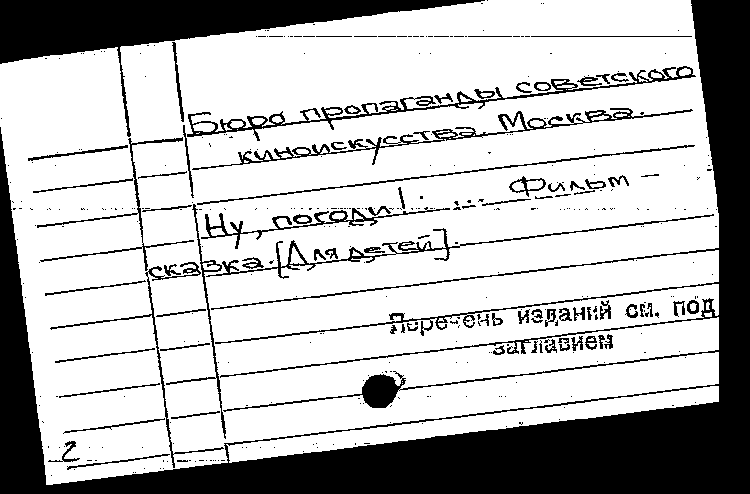 Бюро пропаганды советского
киноискусства. Москва.
Ну, погоди! : ... Фильм -
сказка. [Для детей].
Перечень изданий см. под
заглавием
2